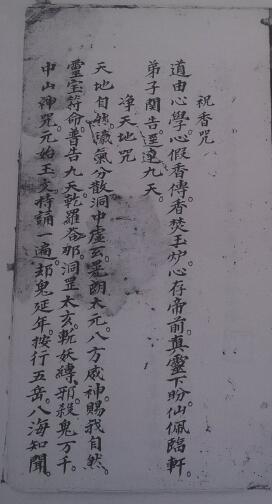 祝香咒
道由心學。心假香傳。香焚玉炉。心存帝前。真靈下盼。仙佩臨軒。
弟子関告。逕達九天。
净天地咒
天地自然。氣分散。洞中虛玄。晃朗太元。八方威神。賜我自然。
靈宝符命。普告九天。乾羅答那。洞罡太玄。斬妖縛邪。殺鬼万千。
中山神咒。元始玉文。持誦一遍。却鬼延年。按行五岳。八海知聞。